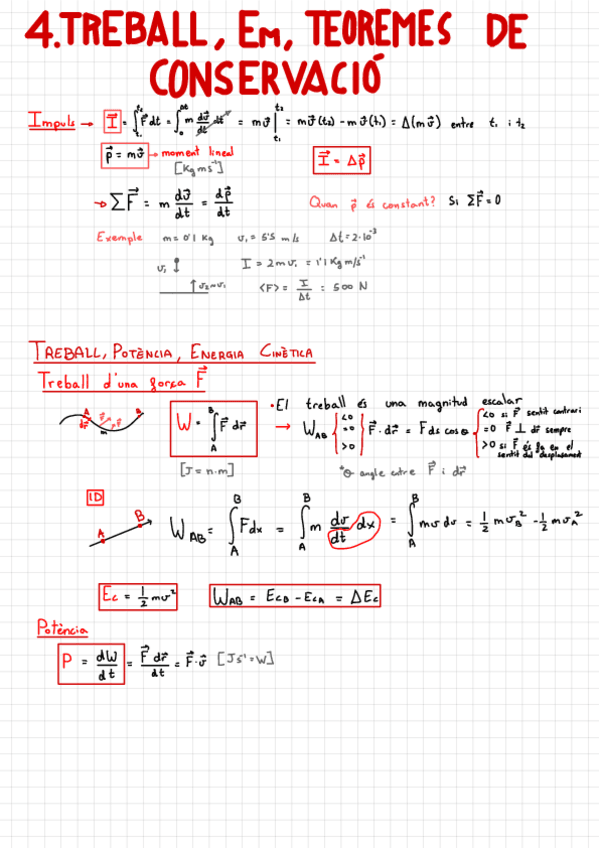 4. TREBALL, Em, TEOREMES DE
CONSERVACIÓ
Impuls → I⃗ = ∫_{t₁}^{t₂} F⃗ dt = ∫ m dv⃗/dt dt = mv⃗ |_{t₁}^{t₂} = mv⃗(t₂) - mv⃗(t₁) = Δ(mv⃗) entre t₁ i t₂
p⃗ = mv⃗ → moment lineal
[Kg m s⁻¹]
I⃗ = Δp⃗
→ ΣF⃗ = m dv⃗/dt = dp⃗/dt
Quan p⃗ és constant? Si ΣF⃗ = 0
Exemple m = 0'1 Kg v₁ = 5'5 m/s Δt = 2·10⁻³
v₁ I = 2mv₁ = 1'1 Kg m/s⁻¹
v₂ = v₁ <F> = I/Δt = 500 N
TREBALL, POTÈNCIA, ENERGIA CINÈTICA
Treball d'una força F⃗
A dr⃗ F⃗ F⃗ B m
W = ∫_A^B F⃗ dr⃗
[J = n·m]
• El treball és una magnitud escalar
→ W_AB { <0 =0 >0 } F⃗·dr⃗ = F ds cos θ
<0 si F⃗ sentit contrari
=0 F⃗ ⊥ dr⃗ sempre
>0 si F⃗ és fa en el
sentit del desplaçament
*θ angle entre F⃗ i dr⃗
1D
A B
W_AB = ∫_A^B F dx = ∫_A^B m dv/dt dx = ∫_A^B mv dv = 1/2 mv_B² - 1/2 mv_A²
Ec = 1/2 mv²
W_AB = E_CB - E_CA = ΔEc
Potència
P = dW/dt = F⃗ dr⃗/dt = F⃗·v⃗ [J s⁻¹ = W]